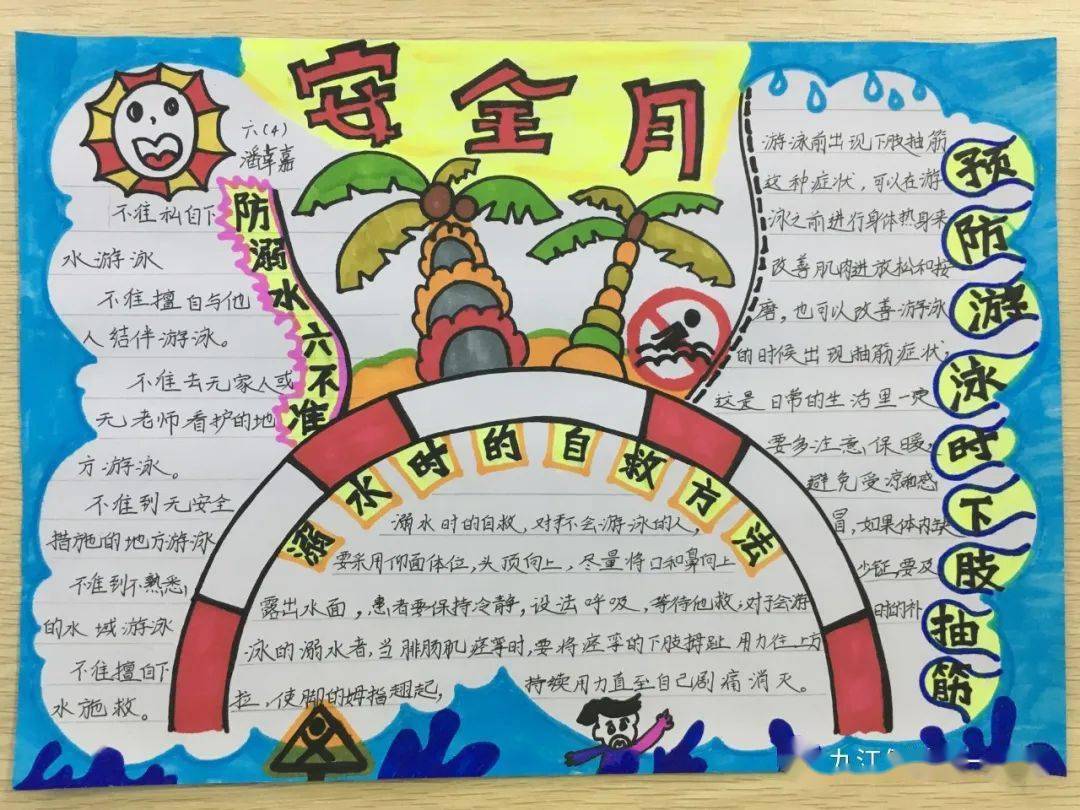 安全月
六(4)
潘卓嘉
防溺水六不准
不准私自下
水游泳
不准擅自与他
人结伴游泳。
不准去无家人或
无老师看护的地
方游泳。
不准到无安全
措施的地方游泳
不准到不熟悉,
的水域游泳
不准擅自下
水施救。
溺水时的自救方法
溺水时的自救,对于不会游泳的人,
要采用仰面体位,头顶向上,尽量将口和鼻向上
露出水面,患者要保持冷静,设法呼吸,等待他救;对于会游
泳的溺水者,当腓肠肌痉挛时,要将痉挛的下肢拇趾用力往上方
拉,使脚的姆指翘起,持续用力直至自己剧痛消灭。
预防游泳时下肢抽筋
游泳前出现下肢抽筋
这种症状,可以在游
泳之前进行身体热身来
改善肌肉进放松和按
磨,也可以改善游泳
的时候出现抽筋症状,
这是日常的生活里一定
要多注意保暖,
避免受凉和感
冒,如果体内缺
少钲,要及
时的补
九江